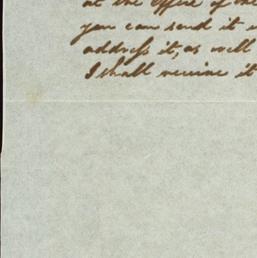 at the office of the
you can send it
address it, as well
I shall receive it